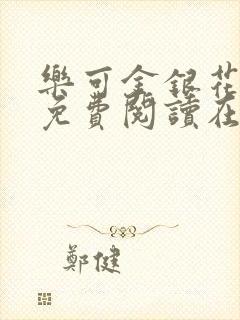 樂可金銀花
免費閱讀在
鄭健